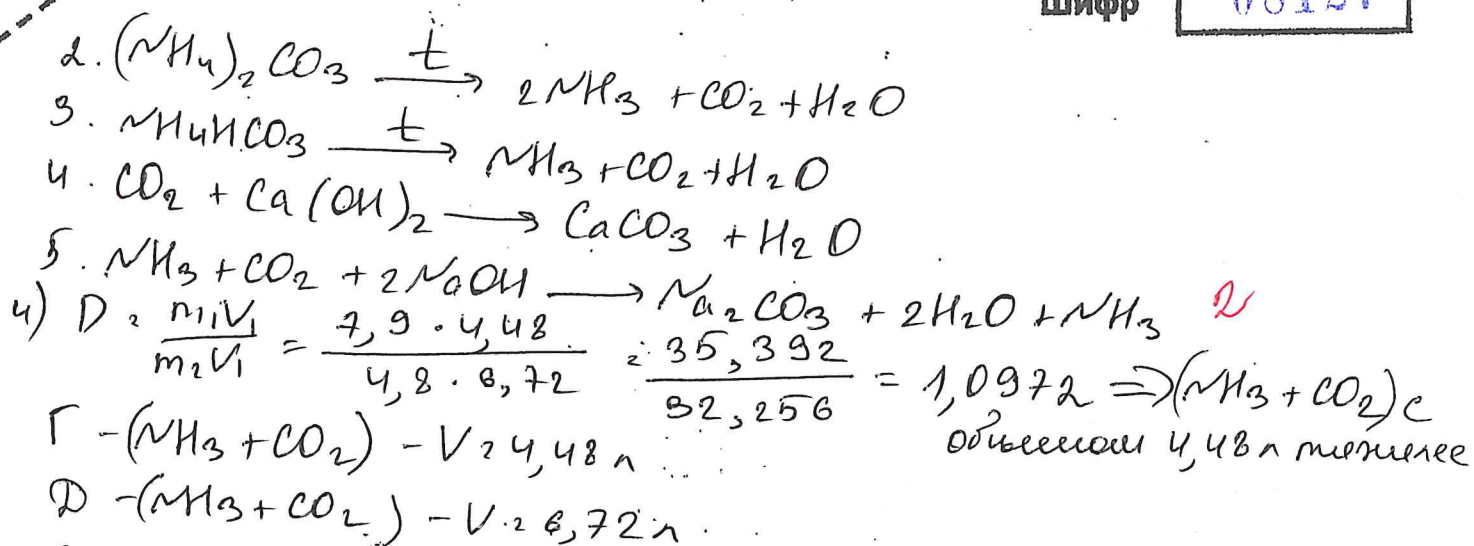 Шифр
2. (NH4)2CO3 t→ 2NH3 + CO2 + H2O
3. NH4HCO3 t→ NH3 + CO2 + H2O
4. CO2 + Ca(OH)2 → CaCO3 + H2O
5. NH3 + CO2 + 2NaOH → Na2CO3 + 2H2O + NH3
4) D = m1V1/m2V1 = 7,9·4,48/4,8·6,72 = 35,392/32,256 = 1,0972 => (NH3 + CO2) с
объемом 4,48 л тяжелее
Г - (NH3 + CO2) - V = 4,48 л
Д - (NH3 + CO2) - V = 6,72 л